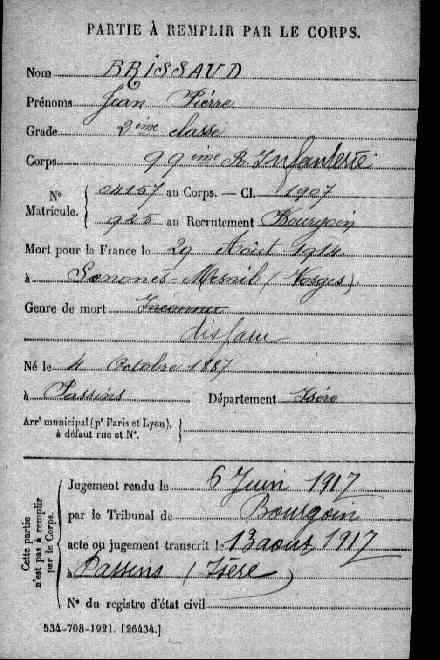 PARTIE À REMPLIR PAR LE CORPS.
Nom BRISSAUD
Prénoms Jean Pierre
Grade 2ème classe
Corps 99ème R. Infanterie
N° Matricule. { 04157 au Corps. — Cl. 1907
925 au Recrutement Bourgoin
Mort pour la France le 29 Août 1914
à Senones-Mesnil (Vosges)
Genre de mort Inconnu
disparu
Né le 4 Octobre 1887
à Passins Département Isère
Arrt municipal (pr Paris et Lyon), à défaut rue et N°. }
Cette partie n'est pas à remplir par le Corps.
Jugement rendu le 6 Juin 1917
par le Tribunal de Bourgoin
acte ou jugement transcrit le 13 août 1917
à Passins (Isère)
N° du registre d'état civil
534-708-1921. [26434.]